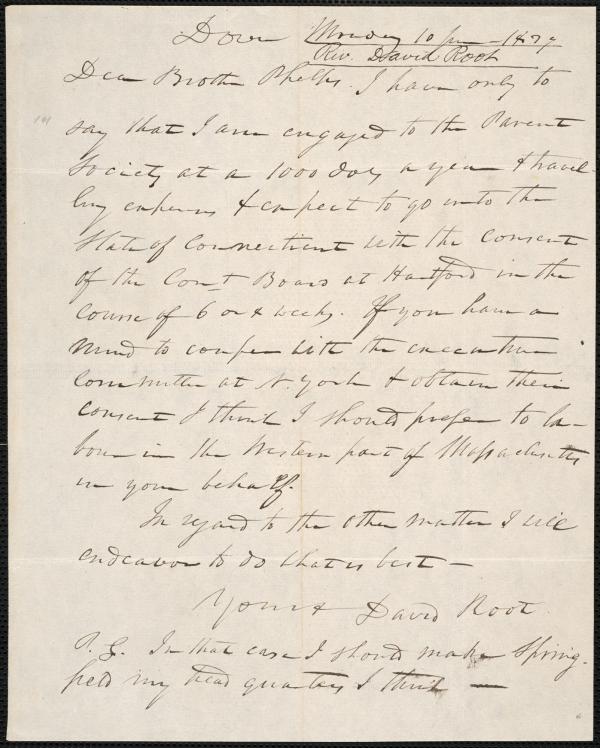 Dover Monday 10 June - 1839
Rev. David Root
Dear Brother Phelps. I have only to
say that I am engaged to the Parent
Society at a 1000 dols a year & travel-
ling expenses & expect to go into the
State of Connecticut with the consent
of the Cont Board at Hartford in the
course of 6 or 8 weeks. If you have a
mind to confer with the executive
committee at N. York & obtain their
consent I think I should prefer to la-
bour in the Western part of Massachusetts
in your behalf.
In regard to the other matter I will
endeavor to do what is best —
Yours &
David Root.
P.S. In that case I should make Spring-
field my head quarters I think —